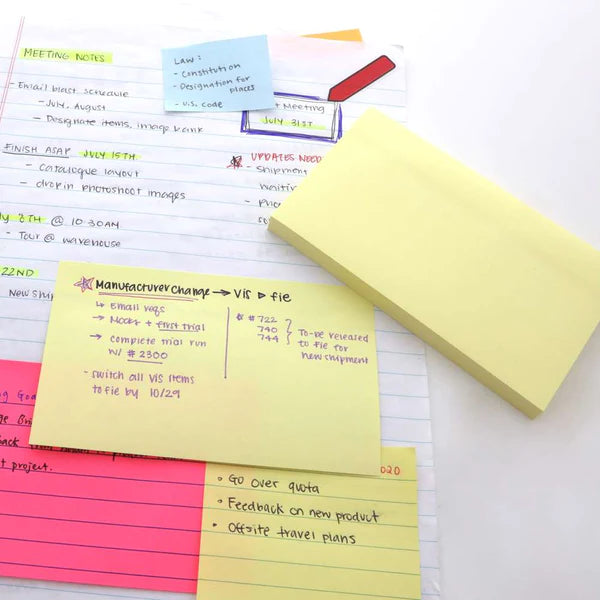 MEETING NOTES
- Email blast schedule
- July, August
- Designate items, image bank
FINISH ASAP JULY 15TH
- catalogue layout
- drop in photoshoot images
8TH @ 10:30AM
- Tour @ warehouse
22ND
New ship
Law:
- Constitution
- Designation for
places
- U.S. code
Meeting
JULY 31ST
UPDATES NEED
- Shipment
waitin
Manufacturer change → Vis ▷ fie
↳ Email reqs
→ Mocks + first trial
→ complete trial run
w/ # 2300
- switch all vis items
to fie by 10/29
# 722
740
744
To-be released
to fie for
new shipment
project.
2020
• Go over quota
• Feedback on new product
• Offsite travel plans